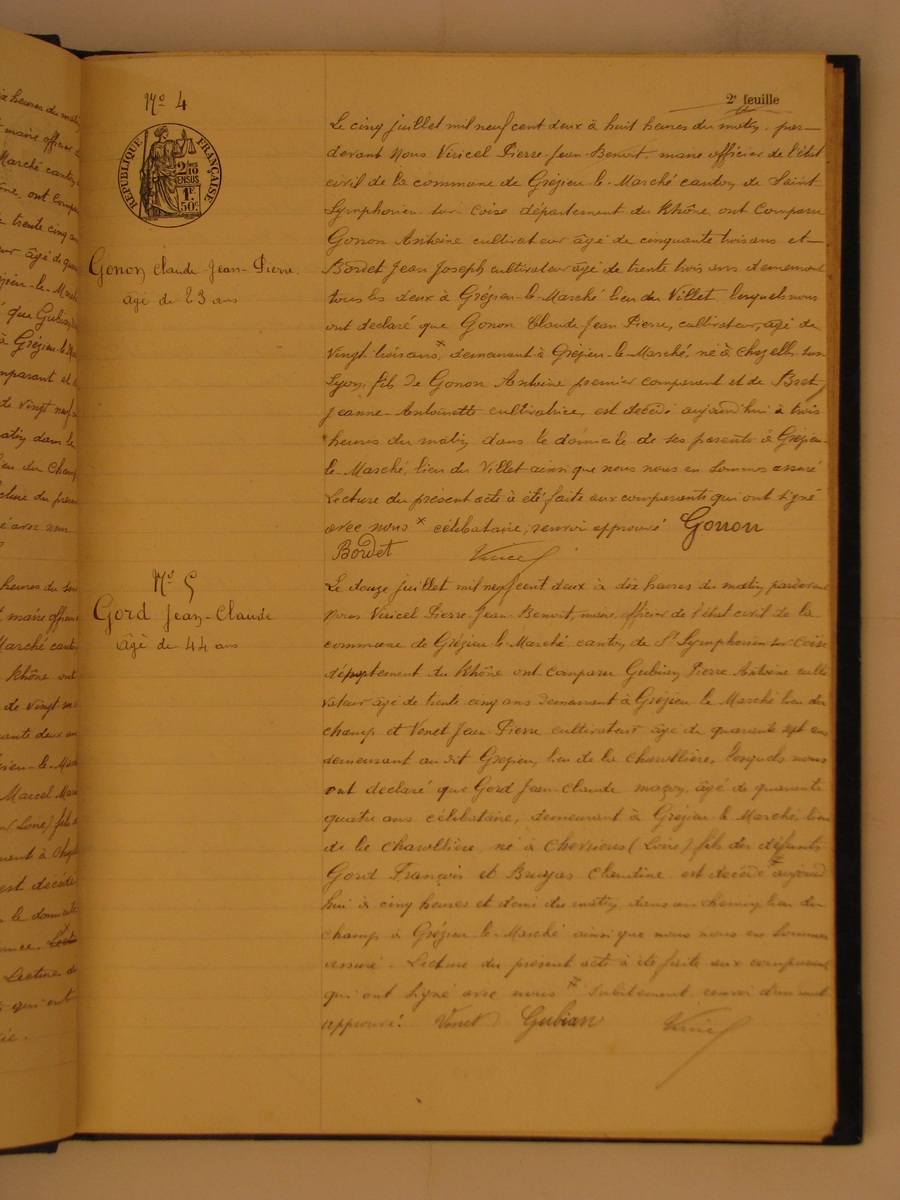 2e feuille
No 4
RÉPUBLIQUE FRANÇAISE
2 10mes
EN SUS
1F
50c
Gonon Claude Jean-Pierre
âgé de 23 ans
Le cinq juillet mil neuf cent deux à huit heures du matin, par-
devant Nous Viricel Pierre-Jean-Benoit, maire officier de l'état
civil de la commune de Grézieu-le-Marché canton de Saint
Symphorien sur Coise département du Rhône, ont comparu
Gonon Antoine cultivateur âgé de cinquante trois ans et
Bordet Jean Joseph cultivateur âgé de trente trois ans demeurant
tous les deux à Grézieu-le-Marché lieu du Villet, lesquels nous
ont déclaré que Gonon Claude Jean Pierre, cultivateur, âgé de
vingt trois ans x, demeurant à Grézieu-le-Marché, né à Chazelle-sur
Lyon, fils de Gonon Antoine premier comparant et de Bret
Jeanne-Antoinette cultivatrice, est décédé aujourd'hui à trois
heures du matin dans le domicile de ses parents à Grézieu
le-Marché, lieu du Villet ainsi que nous nous en sommes assuré
Lecture du présent acte à été faite aux comparants qui ont signé
avec nous x célibataire, renvoi approuvé Gonon
Bordet Viricel
No 5
Gord Jean-Claude
âgé de 44 ans
Le douze juillet mil neuf cent deux à dix heures du matin pardevant
Nous Viricel Pierre-Jean-Benoit, maire, officier de l'état civil de la
commune de Grézieu-le-Marché canton de St Symphorien-sur-Coise
département du Rhône ont comparu Gubian Pierre Antoine culti
vateur âgé de trente cinq ans demeurant à Grézieu le Marché lieu du
champ et Venet Jean-Pierre cultivateur âgé de quarante sept ans
demeurant au dit Grézieu, lieu de la Charollière, lesquels nous
ont déclaré que Gord Jean-Claude maçon, âgé de quarante
quatre ans célibataire, demeurant à Grézieu-le-Marché, lieu
de la Charollière, né à Chevrières (Loire) fils des défunts
Gord François et Bruyas Claudine est décédé x aujourd
hui à cinq heures et demi du matin, dans un chemin, lieu du
champ à Grézieu-le-Marché ainsi que nous nous en sommes
assuré. Lecture du présent acte à été faite aux comparants
qui ont signé avec nous x subitement, renvoi d'un mot
approuvé. Venet Gubian Viricel